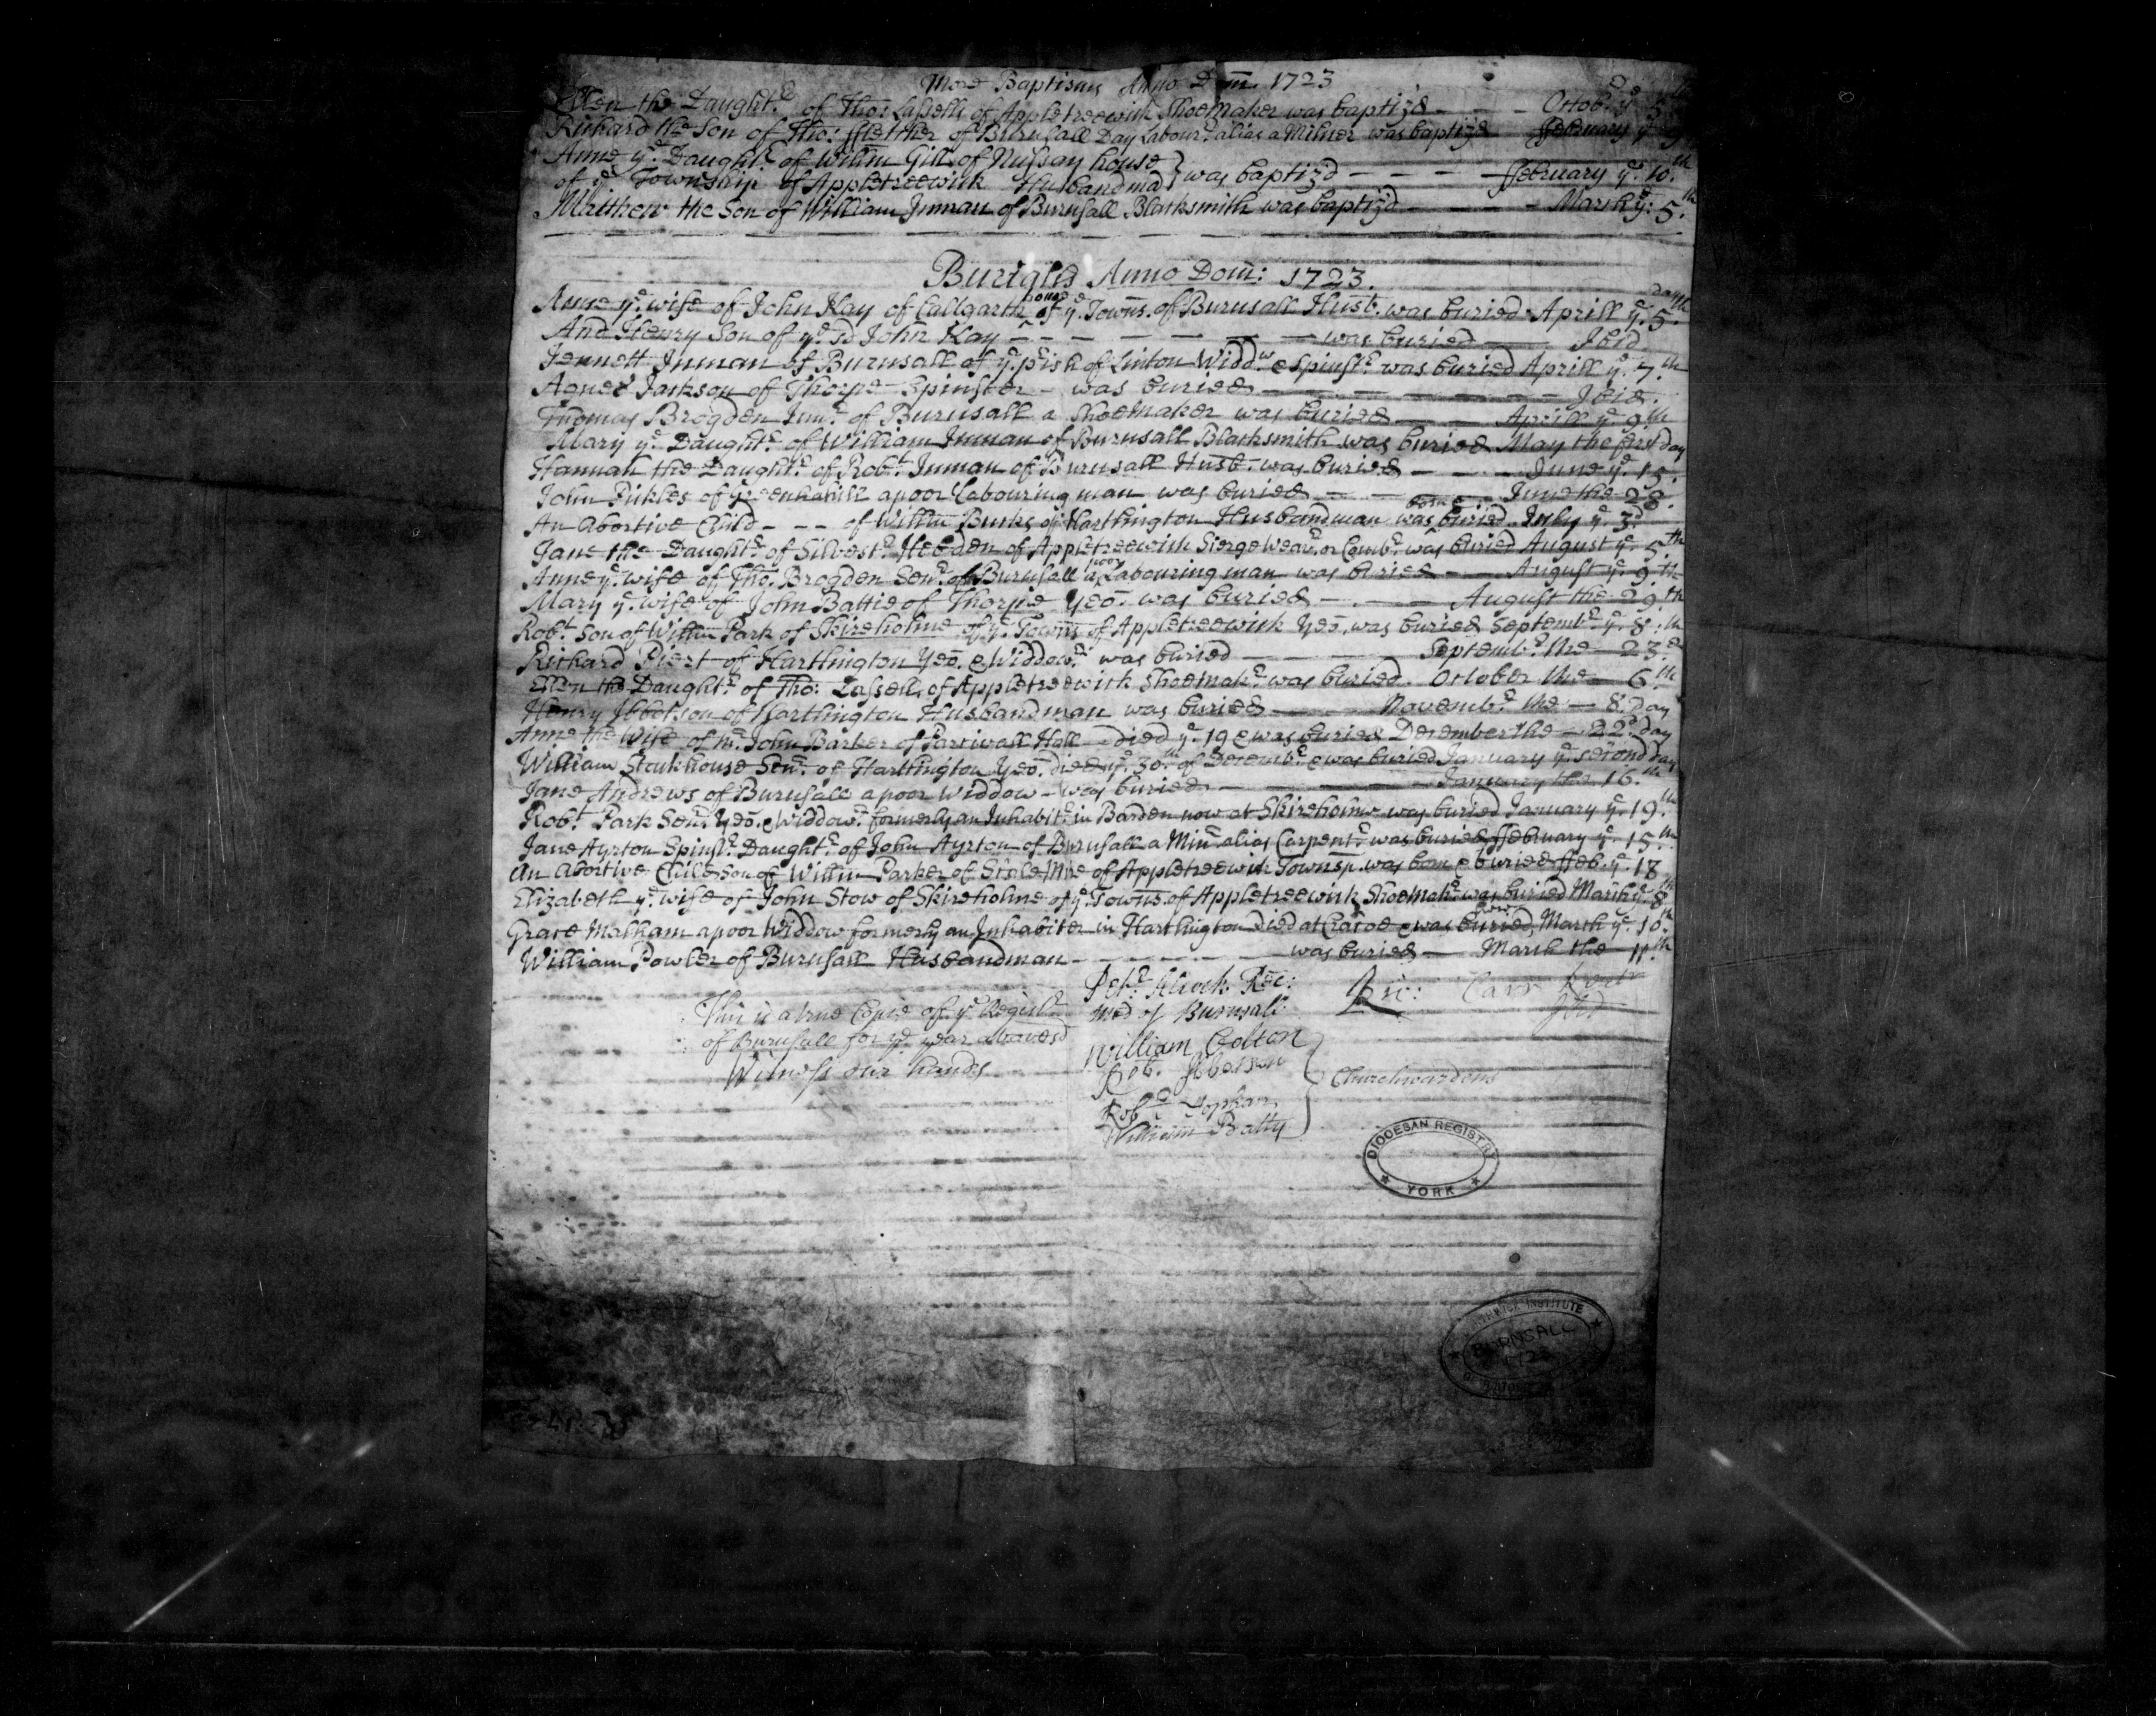 More Baptisms Anno Dom. 1723
Ellen the Daught.r of Tho: Lassells of Appletreewick Shoemaker was baptiz'd - - - Octob.r y.e
Richard the Son of Tho: ffletcher of Burnsall Day Labour.r alias a Milner was baptiz'd ffebruary y.e 9
Anne y.e Daught.r of Willm Gill of Nussay house
of y.e Township of Appletreewick Husbandmā } was baptiz'd - - - - ffebruary y.e 10.th
Matthew the Son of William Inman of Burnsall Blacksmith was baptiz'd - - - March y.e 5.th
Burialls Anno Dom: 1723.
Anne y.e wife of John Kay of Callgarth house of y.e Towns. of Burnsall Husb. was buried Aprill y.e 5.th day
And Henry Son of y.e sd John Kay - - - - - was buried - Ibid
Jennett Inman of Burnsall of y.e pish of Linton Widd.w & Spinst.r was buried Aprill y.e 7.th
Agnes Jackson of Thorpe Spinster - was buried - - - - - Ibid.
Thomas Brogden Jun.r of Burnsall a Shoemaker was buried - Aprill y.e 9.th
Mary y.e Daught.r of William Inman of Burnsall Blacksmith was buried May the first day
Hannah the Daught.r of Rob.t Inman of Burnsall Husb. was buried - - - June y.e 15.
John Pickles of Greenhahill a poor Labouring man was buried - - - June the 28.
An Abortive Child - - - of Willm Burks of Harthington Husbandman was born & buried July y.e 3.d
Jane the Daught.r of Silvest.r Hebden of Appletreewick Sierge Weav.r or Comb.r was buried August y.e 5.th
Anne y.e wife of Tho. Brogden Sen.r of Burnsall a poor Labouring man was buried - August y.e 9.th
Mary y.e wife of John Battie of Thorpe Yeo. was buried - - - August the 29.th
Rob.t Son of Willm Park of Skireholme of y.e Towns of Appletreewick Yeo. was buried Septemb.r y.e 8.th
Richard Piert of Harthington Yeo. & Widdow.r was buried - - - Septemb.r the 23.d
Ellen the Daught.r of Tho: Lassells of Appletreewick Shoemak.r was buried. October the 6.th
Henry Ibbotson of Harthington Husbandman was buried - - Novemb.r the - 8. day
Anne the Wife of Mr. John Barker of Parcivall Hall - Died y.e 19 & was buried December the - 22.d day
William Stackhouse Sen.r of Harthington Yeo. died y.e 30.th of Decemb.r & was buried January y.e second day
Jane Andrews of Burnsall a poor Widdow - was buried - - - January the 16.th
Rob.t Park Sen.r Yeo. & Widdow.r formerly an Inhabit.r in Barden now at Skireholme was buried January y.e 19.th
Jane Ayrton Spinst.r Daught.r of John Ayrton of Burnsall a Min.r alias Carpent.r was buried ffebruary y.e 15.th
An Abortive Child Son of Willm Parker of Mire of Appletreewick Townsp. was born & buried ffeb. y.e 17
Elizabeth y.e wife of John Stow of Skireholme of y.e Towns. of Appletreewick Shoemak.r was buried March y.e 8.th
Grace Malham a poor Widdow formerly an Inhabiter in Harthington Died at Cracoe & was buried March y.e 10.th
William Fowler of Burnsall Husbandman - - - - - was buried - March the 11.th
This is a true Copie of y.e Regist.r
of Burnsall for y.e year abovesd
Witness our hands
Pet.r Alcock Rec:
Med of Burnsall
Ric: Carr Rect.r
William Bolton
Rob. Ibbotson
Rob.t Topham
William Batty
} Churchwardens
DIOCESAN REGISTRY
YORK
BORTHWICK INSTITUTE
BURNSALL
1723